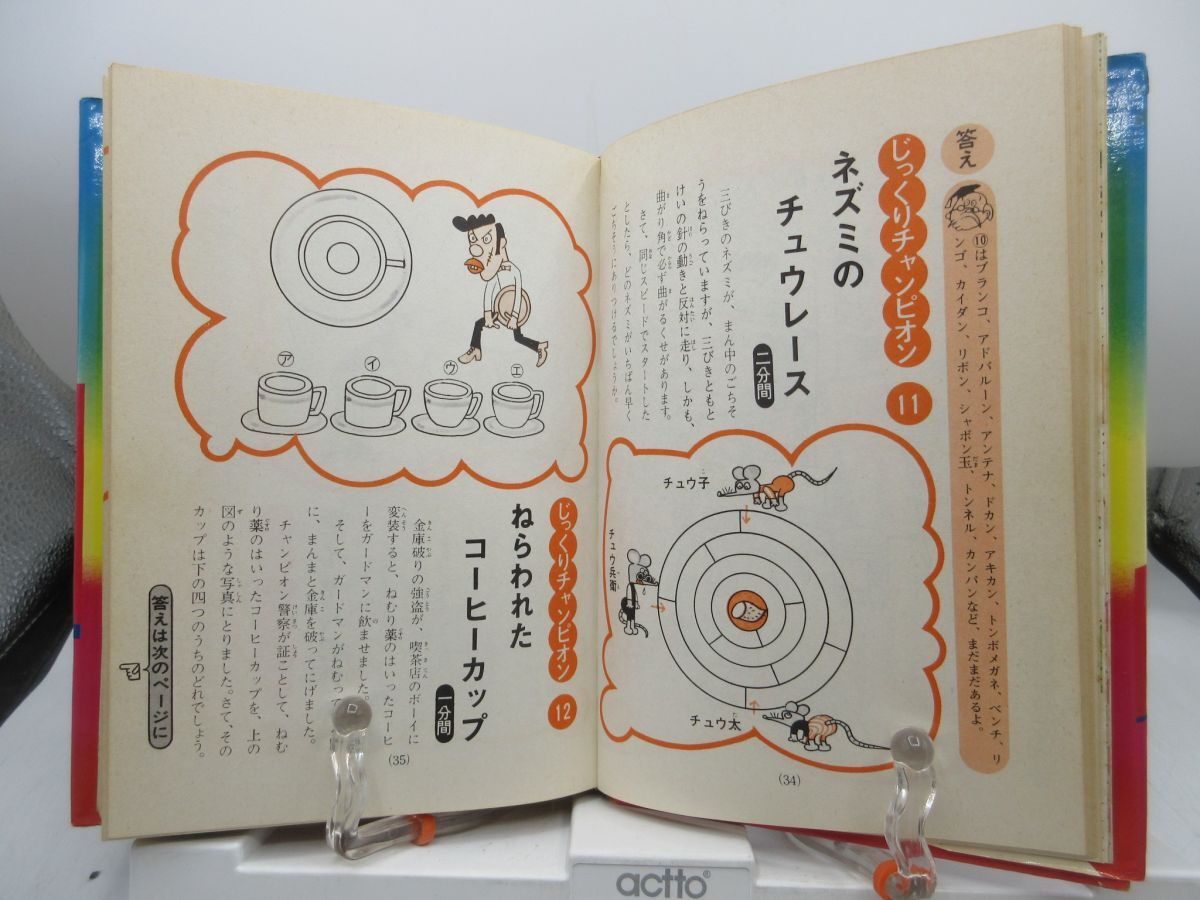 答え
⑩はブランコ、アドバルーン、アンテナ、ドカン、アキカン、トンボメガネ、ベンチ、リ
ンゴ、カイダン、リボン、シャボン玉、トンネル、カンバンなど、まだまだあるよ。
じっくりチャンピオン 11
ネズミの
チュウレース
二分間
三びきのネズミが、まん中のごちそ
うをねらっていますが、三びきともと
けいの針の動きと反対に走り、しかも、
曲がり角で必ず曲がるくせがあります。
さて、同じスピードでスタートした
としたら、どのネズミがいちばん早く
ごちそうにありつけるでしょうか。
チュウ子
チュウ兵衛
チュウ太
(34)
ア
イ
ウ
エ
じっくりチャンピオン 12
ねらわれた
コーヒーカップ
一分間
金庫破りの強盗が、喫茶店のボーイに
変装すると、ねむり薬のはいったコーヒ
ーをガードマンに飲ませました。
そして、ガードマンがねむって
に、まんまと金庫を破ってにげました。
チャンピオン警察が証ことして、ねむ
り薬のはいったコーヒーカップを、上の
図のような写真にとりました。さて、その
カップは下の四つのうちのどれでしょう。
答えは次のページに
(35)
actto®